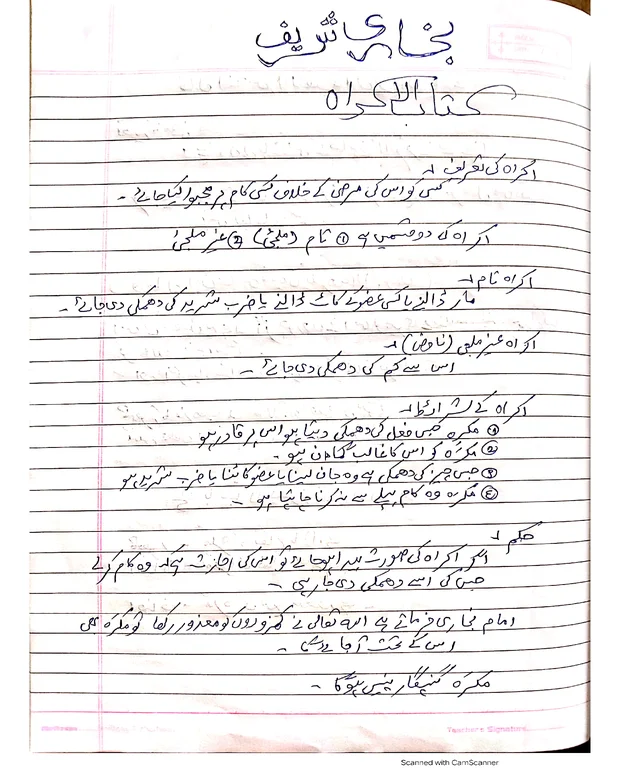 بخاری شریف
کتاب الاکراہ
اکراہ کی تعریف
کسی کو اس کی مرضی کے خلاف کسی کام پر مجبور کیا جائے ۔
اکراہ کی دو قسمیں ہے ① تام (ملجئ) ② غیر ملجئ
اکراہ تام
مار ڈالنے یا کسی عضو کے کاٹ ڈالنے یا ضرب شدید کی دھمکی دی جائے ۔
اکراہ غیر ملجی (ناقص)
اس سے کم کی دھمکی دی جائے ۔
اکراہ کے شرائط
① مکرِہ جس فعل کی دھمکی دیتا ہو اس پر قادر ہو
② مکرَہ کو اس کا غالب گمان ہو ۔
③ جس چیز کی دھمکی ہے وہ جان لینا یا عضو کاٹنا یا ضرب شدید ہو
④ مکرہ وہ کام پہلے سے نہ کرنا چاہتا ہو ۔
حکم
اگر اکراہ کی صورت پیدا ہو جائے تو اس کی اجازت ہے کہ وہ کام کرلے
جس کی اسے دھمکی دی جا رہی ۔
امام بخاری فرماتے ہے اللہ تعالی نے کمزوروں کو معذور رکھا تو مکرَہ بھی
اس کے تحت آ جائے
مکرَہ گنہگار نہیں ہوگا ۔
Teacher's Signature
Scanned with CamScanner